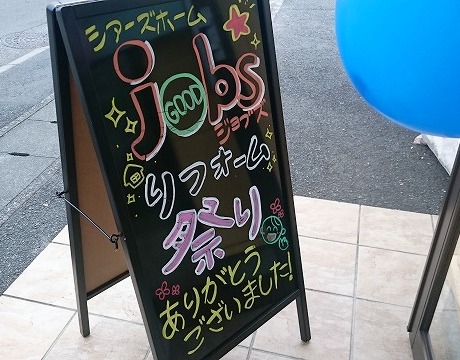 シアーズホーム
jobs
GOOD
ジョブズ
リフォーム
祭り
ありがとう
ございました!